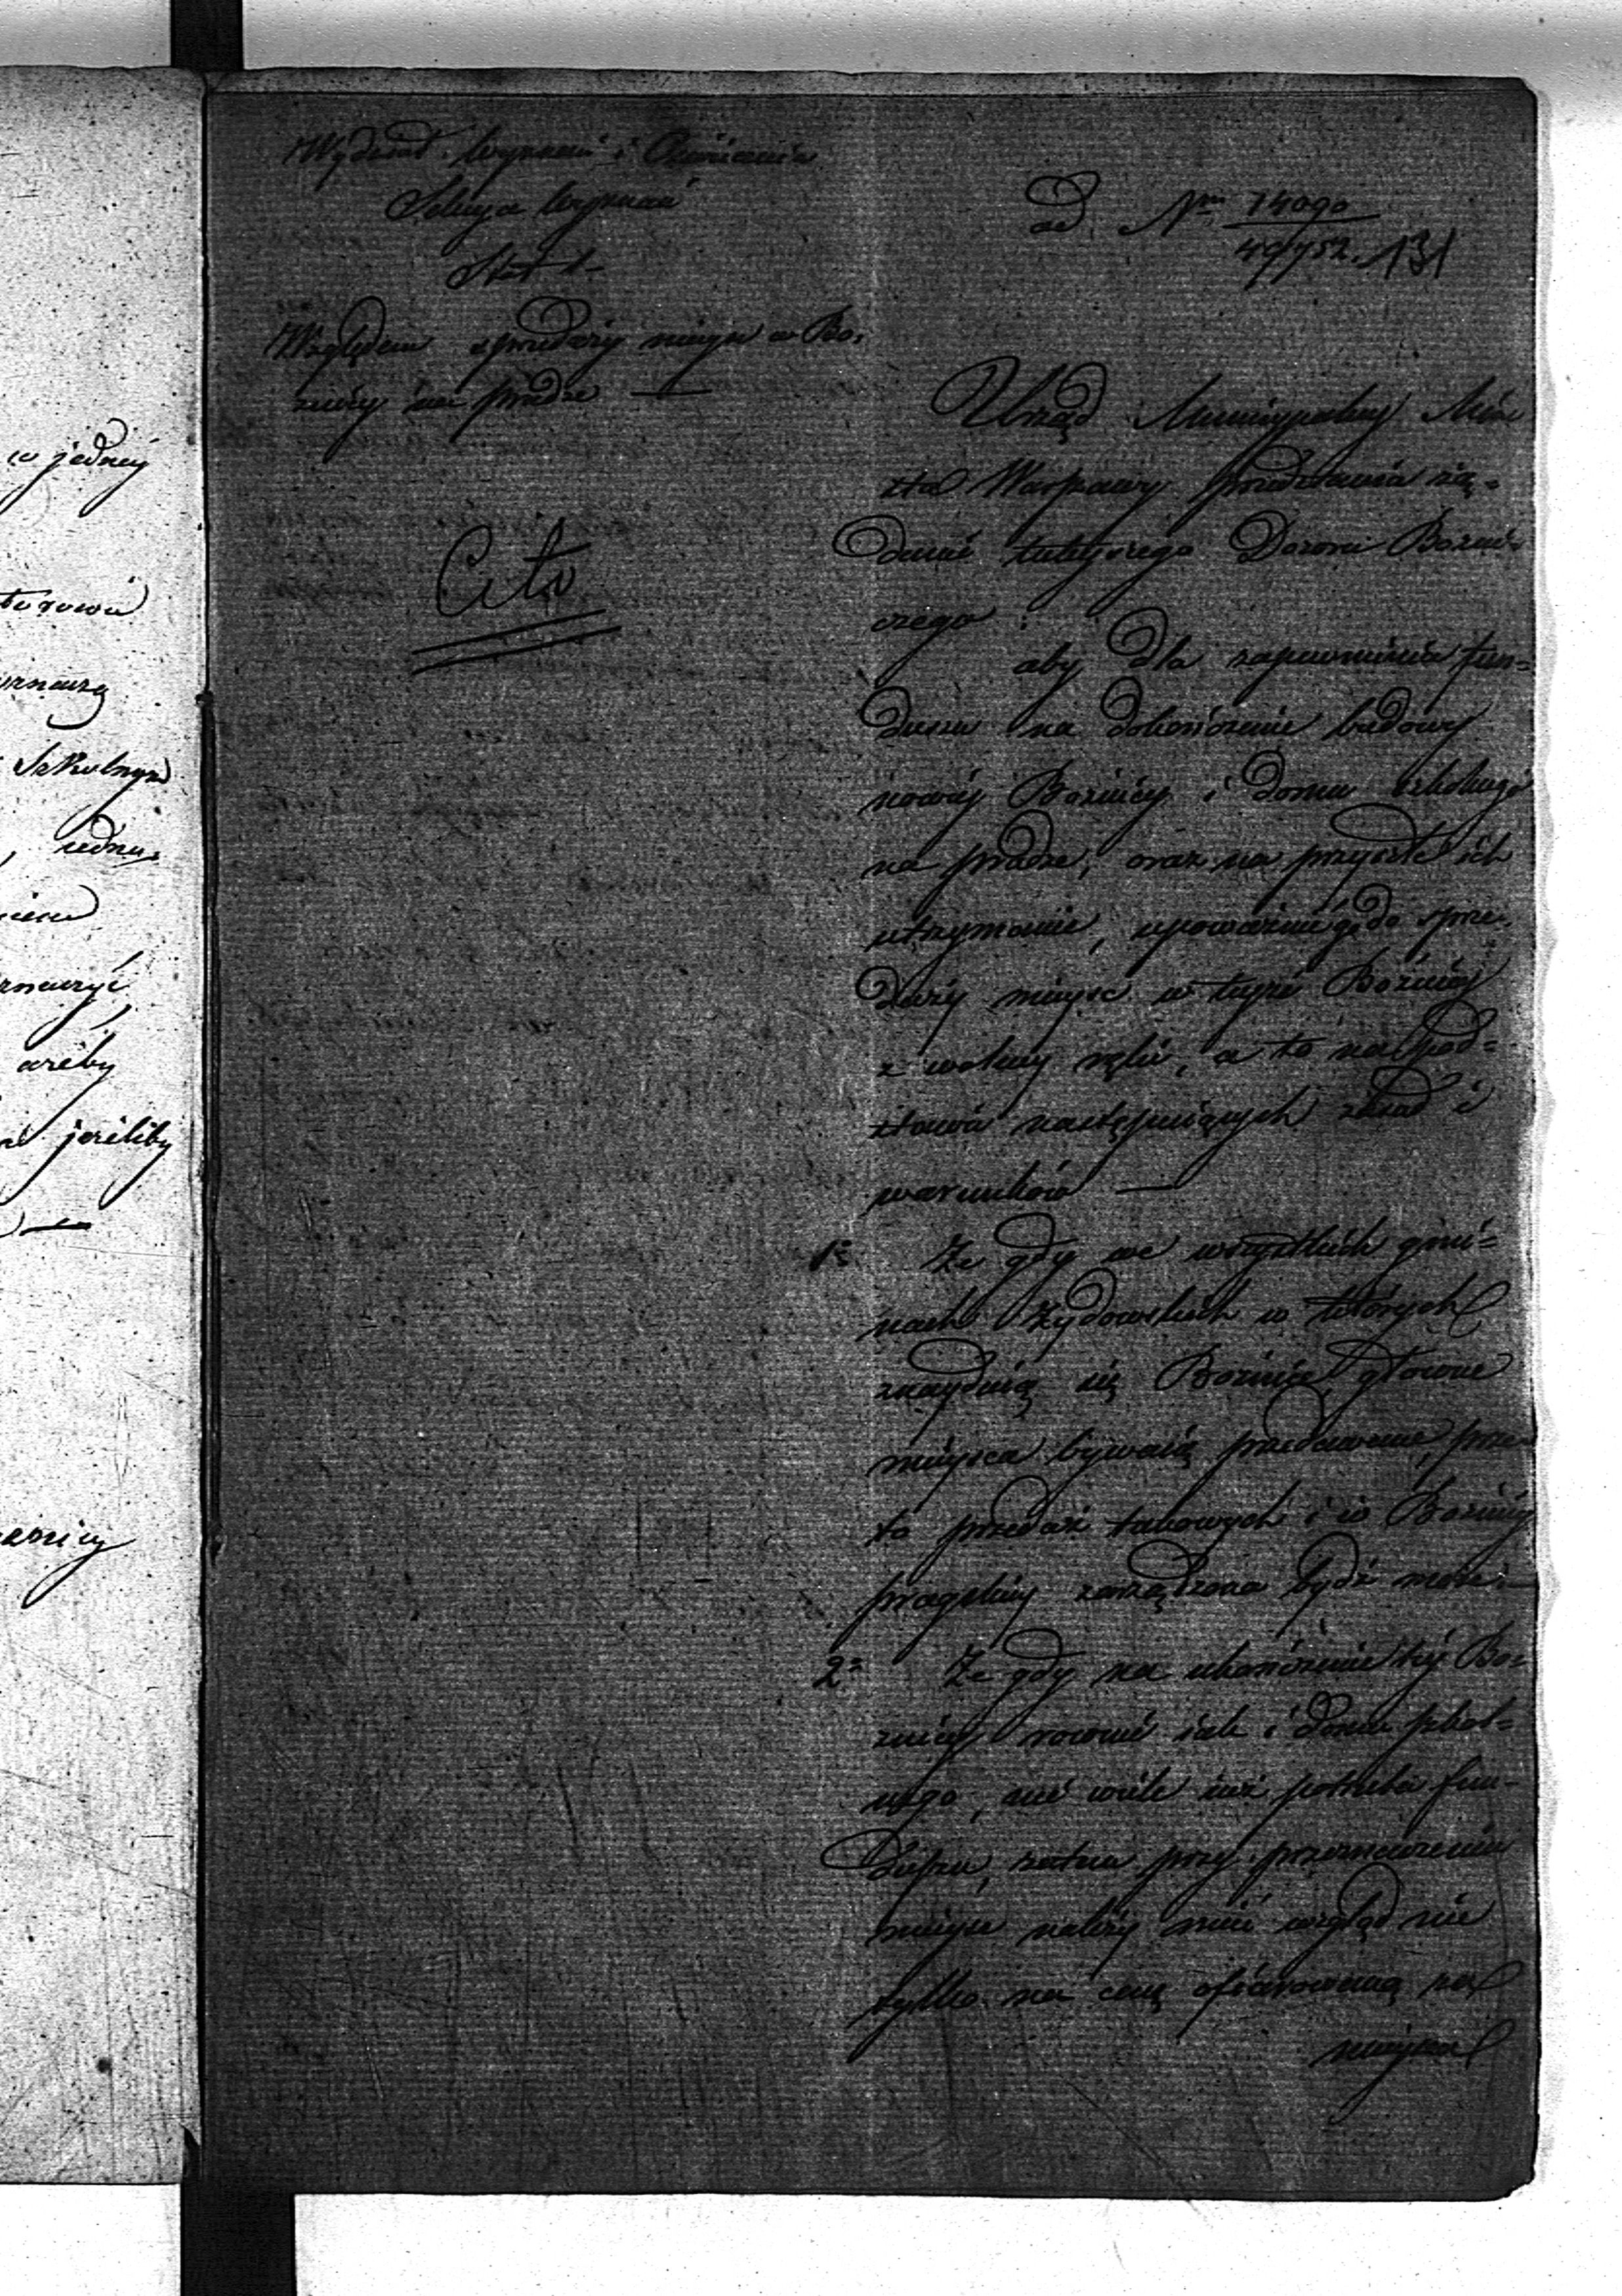 w jedney
Szkolnym
jeżeliby
Wydział Wyznań i Oświecenia
Sekcya Wyznań
ad Nrm 14090
131
Względem sprzedaży mieysc w Bo-
żnicy na pradze —
Cito
Urząd Municypalny Mia
sta Warszawy przedstawia żą-
danie tuteyszego Dozoru Bożni-
czego:
aby dla zapewnienia fun-
duszu na dokończenie budowy
nowéy Bożnicy i domu szkolnego
na pradze, oraz na przyszłe ich
utrzymanie, upoważnić go do sprze-
daży mieysc w teyże Bożnicy
z wolney ręki, a to na pod-
stawie następuiących zasad i
warunków —
1o Że gdy we wszystkich gmi-
nach Żydowskich w których
znayduią się Bożnice główne
mieysca bywaią przedawane, prze
to przedaż takowych i w Bożnicy
pragskiey zarządzona bydź może.—
2o Że gdy na ukończenie téy Bo-
żnicy równie iak i domu szkol-
nego, nie wiele iuż potrzeba fun-
duszu, zatem przy przeznaczeniu
mieysc należy mieć wzgląd nie
tylko na cenę ofiarowaną za
mieysca